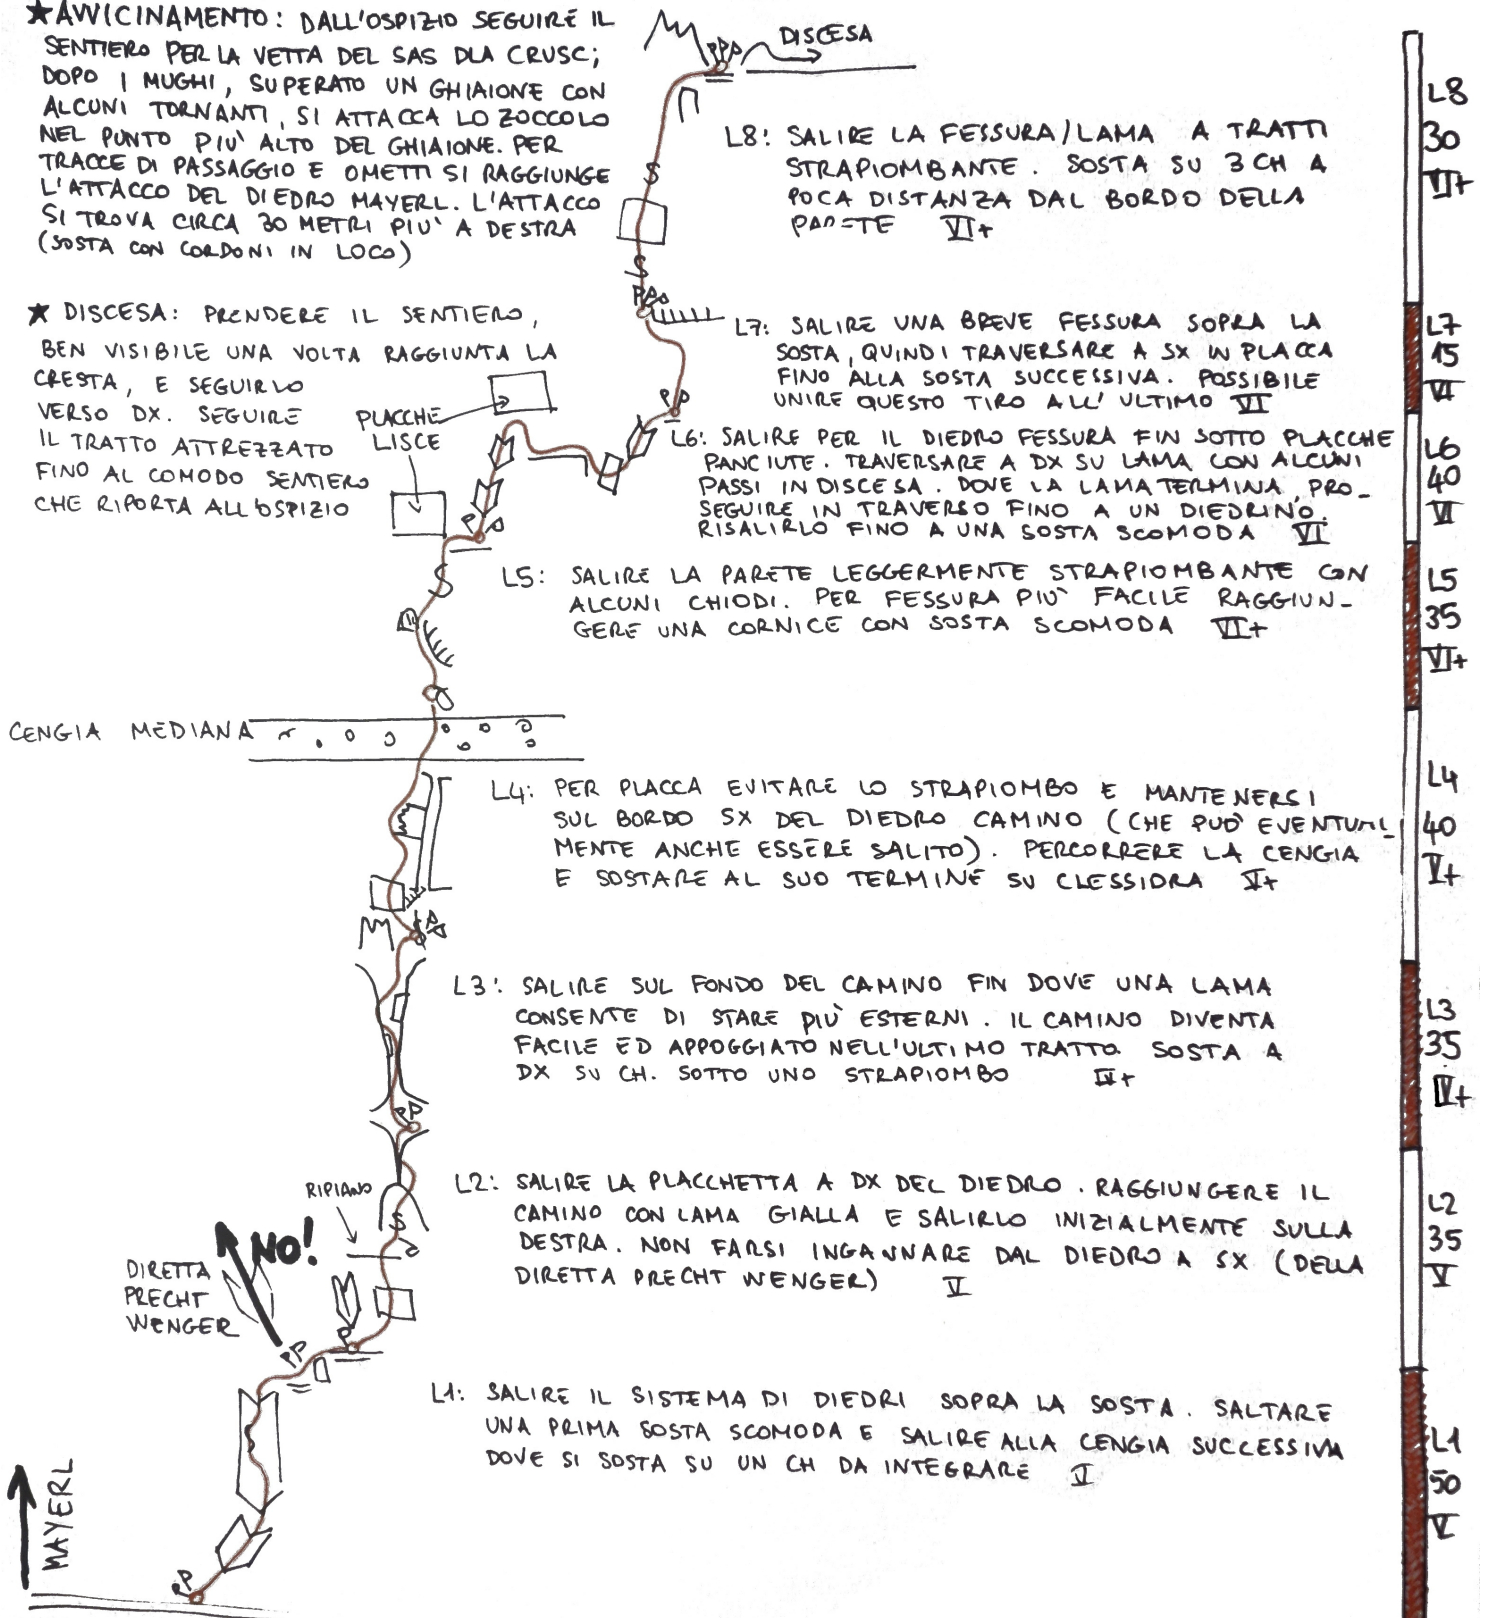 ★ AVVICINAMENTO: DALL'OSPIZIO SEGUIRE IL
SENTIERO PER LA VETTA DEL SAS DLA CRUSC;
DOPO I MUGHI, SUPERATO UN GHIAIONE CON
ALCUNI TORNANTI, SI ATTACCA LO ZOCCOLO
NEL PUNTO PIU' ALTO DEL GHIAIONE. PER
TRACCE DI PASSAGGIO E OMETTI SI RAGGIUNGE
L'ATTACCO DEL DIEDRO MAYERL. L'ATTACCO
SI TROVA CIRCA 30 METRI PIU' A DESTRA
(SOSTA CON CORDONI IN LOCO)
★ DISCESA: PRENDERE IL SENTIERO,
BEN VISIBILE UNA VOLTA RAGGIUNTA LA
CRESTA, E SEGUIRLO
VERSO DX. SEGUIRE
IL TRATTO ATTREZZATO
FINO AL COMODO SENTIERO
CHE RIPORTA ALL'OSPIZIO
DISCESA
PPP
L8: SALIRE LA FESSURA/LAMA A TRATTI
STRAPIOMBANTE. SOSTA SU 3 CH A
POCA DISTANZA DAL BORDO DELLA
PARETE VI+
L8
30
VI+
S
S
PPP
L7: SALIRE UNA BREVE FESSURA SOPRA LA
SOSTA, QUINDI TRAVERSARE A SX IN PLACCA
FINO ALLA SOSTA SUCCESSIVA. POSSIBILE
UNIRE QUESTO TIRO ALL'ULTIMO VI
L7
15
VI
PLACCHE
LISCE
PP
L6: SALIRE PER IL DIEDRO FESSURA FIN SOTTO PLACCHE
PANCIUTE. TRAVERSARE A DX SU LAMA CON ALCUNI
PASSI IN DISCESA. DOVE LA LAMA TERMINA, PRO-
SEGUIRE IN TRAVERSO FINO A UN DIEDRINO.
RISALIRLO FINO A UNA SOSTA SCOMODA VI
L6
40
VI
P P
S
L5: SALIRE LA PARETE LEGGERMENTE STRAPIOMBANTE CON
ALCUNI CHIODI. PER FESSURA PIU' FACILE RAGGIUN-
GERE UNA CORNICE CON SOSTA SCOMODA VI+
L5
35
VI+
CENGIA MEDIANA
L4: PER PLACCA EVITARE LO STRAPIOMBO E MANTENERSI
SUL BORDO SX DEL DIEDRO CAMINO (CHE PUO' EVENTUAL-
MENTE ANCHE ESSERE SALITO). PERCORRERE LA CENGIA
E SOSTARE AL SUO TERMINE SU CLESSIDRA V+
L4
40
V+
L3: SALIRE SUL FONDO DEL CAMINO FIN DOVE UNA LAMA
CONSENTE DI STARE PIÙ ESTERNI. IL CAMINO DIVENTA
FACILE ED APPOGGIATO NELL'ULTIMO TRATTO. SOSTA A
DX SU CH. SOTTO UNO STRAPIOMBO IV+
L3
35
IV+
PP
RIPIANO
S
L2: SALIRE LA PLACCHETTA A DX DEL DIEDRO. RAGGIUNGERE IL
CAMINO CON LAMA GIALLA E SALIRLO INIZIALMENTE SULLA
DESTRA. NON FARSI INGANNARE DAL DIEDRO A SX (DELLA
DIRETTA PRECHT WENGER) V
L2
35
V
NO!
DIRETTA
PRECHT
WENGER
PP
P
L1: SALIRE IL SISTEMA DI DIEDRI SOPRA LA SOSTA. SALTARE
UNA PRIMA SOSTA SCOMODA E SALIRE ALLA CENGIA SUCCESSIVA
DOVE SI SOSTA SU UN CH DA INTEGRARE V
L1
50
V
MAYERL
P